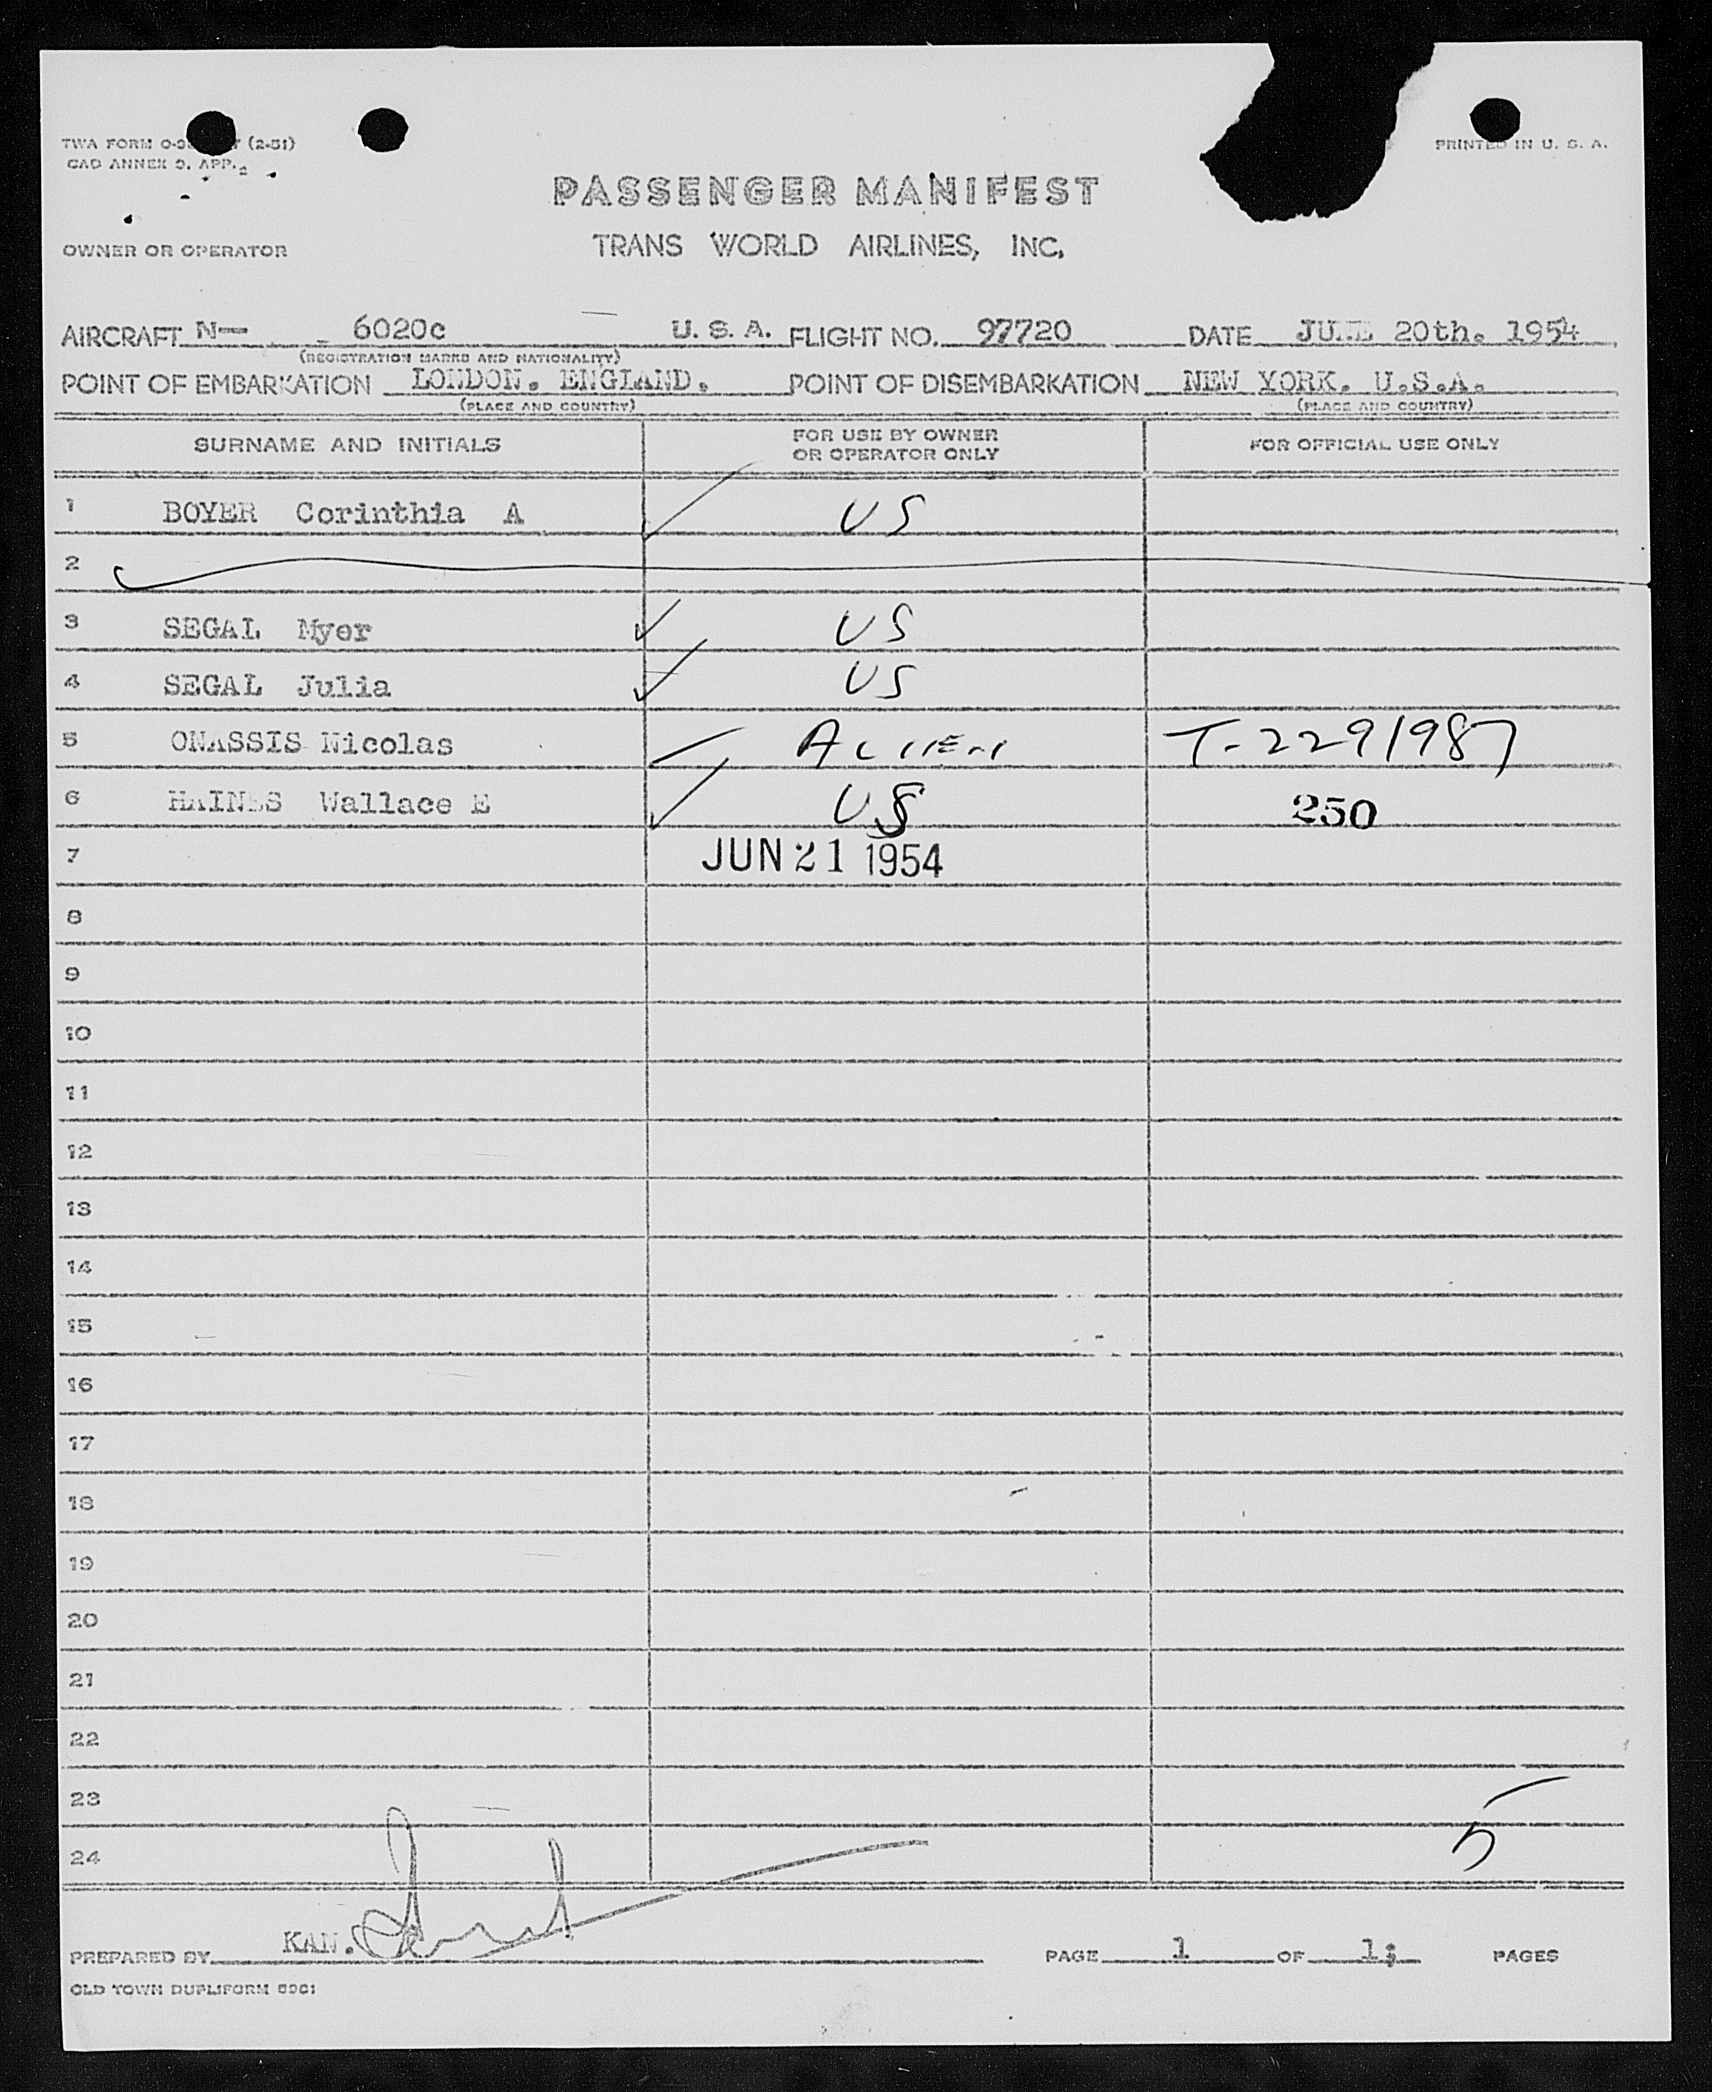 TWA FORM (2-51)
CAD ANNEX 9. APP. 2
PRINTED IN U. S. A.
PASSENGER MANIFEST
OWNER OR OPERATOR
TRANS WORLD AIRLINES, INC.
AIRCRAFT N— 6020c U. S. A. FLIGHT NO. 97720 DATE JUNE 20th. 1954
(REGISTRATION MARKS AND NATIONALITY)
POINT OF EMBARKATION LONDON. ENGLAND. POINT OF DISEMBARKATION NEW YORK. U.S.A.
(PLACE AND COUNTRY) (PLACE AND COUNTRY)
SURNAME AND INITIALS FOR USE BY OWNER OR OPERATOR ONLY FOR OFFICIAL USE ONLY
1 BOYER Corinthia A US
2
3 SEGAL Myer US
4 SEGAL Julia US
5 ONASSIS Nicolas ALIEN T-2291987
6 HAINES Wallace E US 250
7 JUN 21 1954
8
9
10
11
12
13
14
15
16
17
18
19
20
21
22
23
24 5
PREPARED BY KAN. PAGE 1 OF 1; PAGES
OLD TOWN DUPLIFORM